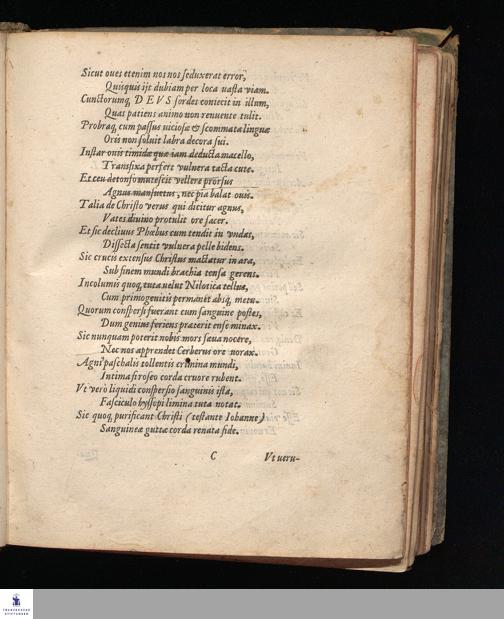 Sicut oues etenim nos nos seduxerat error,
Quisquis ijt dubiam per loca uasta viam.
Cunctorumq́; DEVS sordes coniecit in illum,
Quas patiens animo non renuente tulit.
Probraq́; cum passus uiciosæ & scommata linguæ
Oris non soluit labra decora sui.
Instar ouis timidæ quæ iam deducta macello,
Transfixa perfert vulnera tacta cute.
Et ceu detonso mutescit vellere prorsus
Agnus mansuetus, nec pia balat ouis.
Talia de Christo verus qui dicitur agnus,
Vates diuino protulit ore sacer.
Et sic decliuus Phœbus cum tendit in vndas,
Dissecta sentit vulnera pelle bidens.
Sic crucis extensus Christus mactatur in ara,
Sub finem mundi brachia tensa gerens.
Incolumis quoq́; tuta uelut Nilotica tellus,
Cum primogenitis permanet absq́; metu.
Quorum conspersi fuerant tum sanguine postes,
Dum genius feriens præterit ense minax.
Sic nunquam poterit nobis mors sæua nocere,
Nec nos apprendet Cerberus ore uorax.
Agni paschalis tollentis crimina mundi,
Intima si roseo corda cruore rubent.
Vt verò liquidi conspersio sanguinis ista,
Fasciculo hyssopi limina tuta notat.
Sic quoq́; purificant Christi (testante Iohanne)
Sanguineæ guttæ corda renata fide.
C Vt ueru-
FRANCKESCHE
STIFTUNGEN